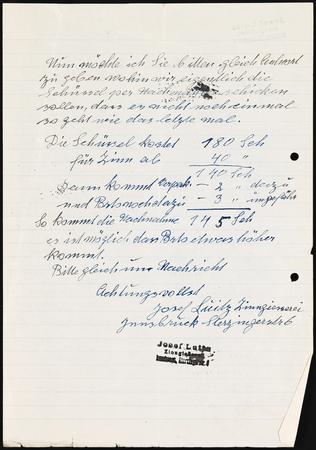 Nun möchte ich Sie bitten gleich Antwort
zu geben wohin wir eigentlich die
Schüssel per Nachnahme schicken
sollen, dass es nicht noch einmal
so geht wie das letzte mal.
Die Schüssel kostet 180 Sch
für Zinn ab 40 "
140 Sch
Dann kommt Verpak. – 2 " dazu
und Porto noch dazu – 3 " ungefähr
So kommt die Nachnahme 145 Sch
es ist möglich das Porto etwas höher
kommt.
Bitte gleich um Nachricht
Achtungsvollst
Josef Luitz Zinngiesserei
Innsbruck Sterzingerstr 6
Josef Luitz
Zinngiesserei